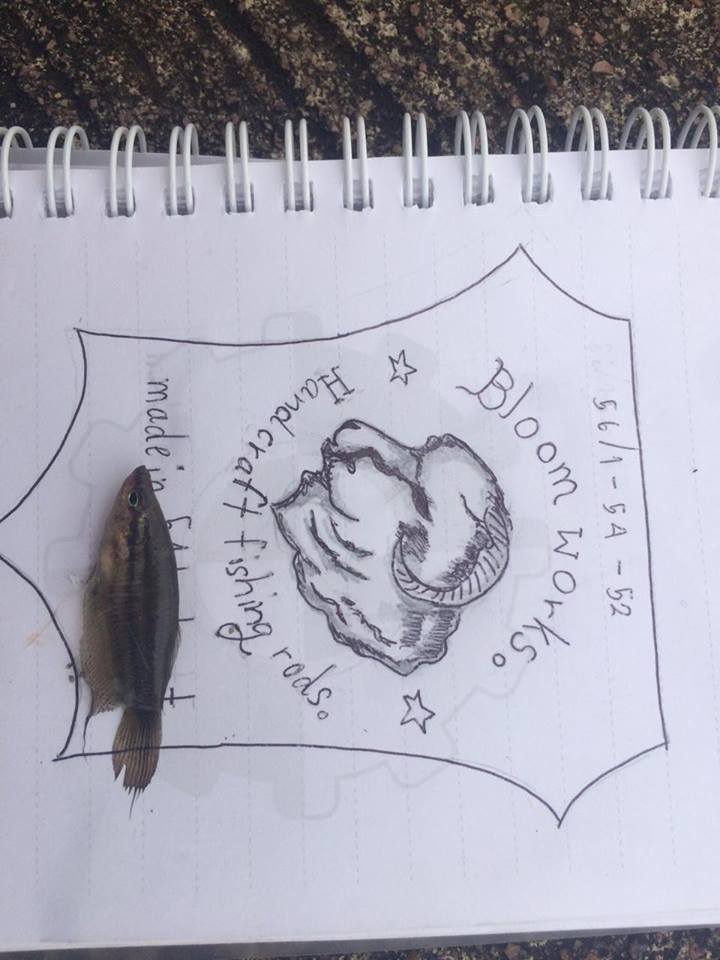 56/1 - 5A - 52
Bloom works.
Handcraft fishing rods.
made in